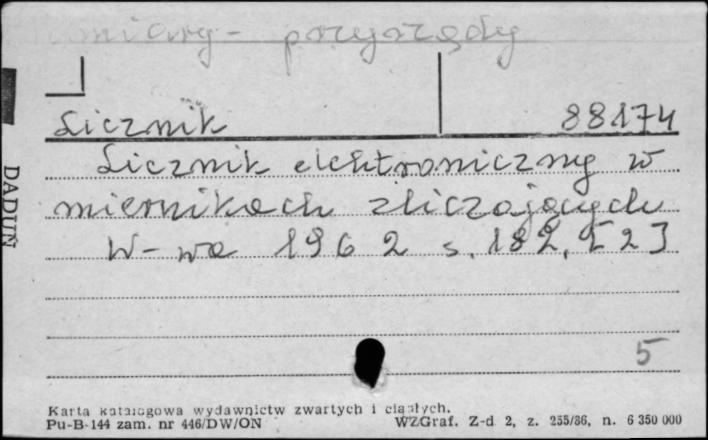 miary - przyrządy
Licznik 88174
Licznik elektroniczny w
miernikach zliczających
W-wa 1962 s. 182, [2]
5
DADUŃ
Karta katalogowa wydawnictw zwartych i ciągłych.
Pu-B-144 zam. nr 446/DW/ON WZGraf. Z-d 2, z. 255/86, n. 6 350 000